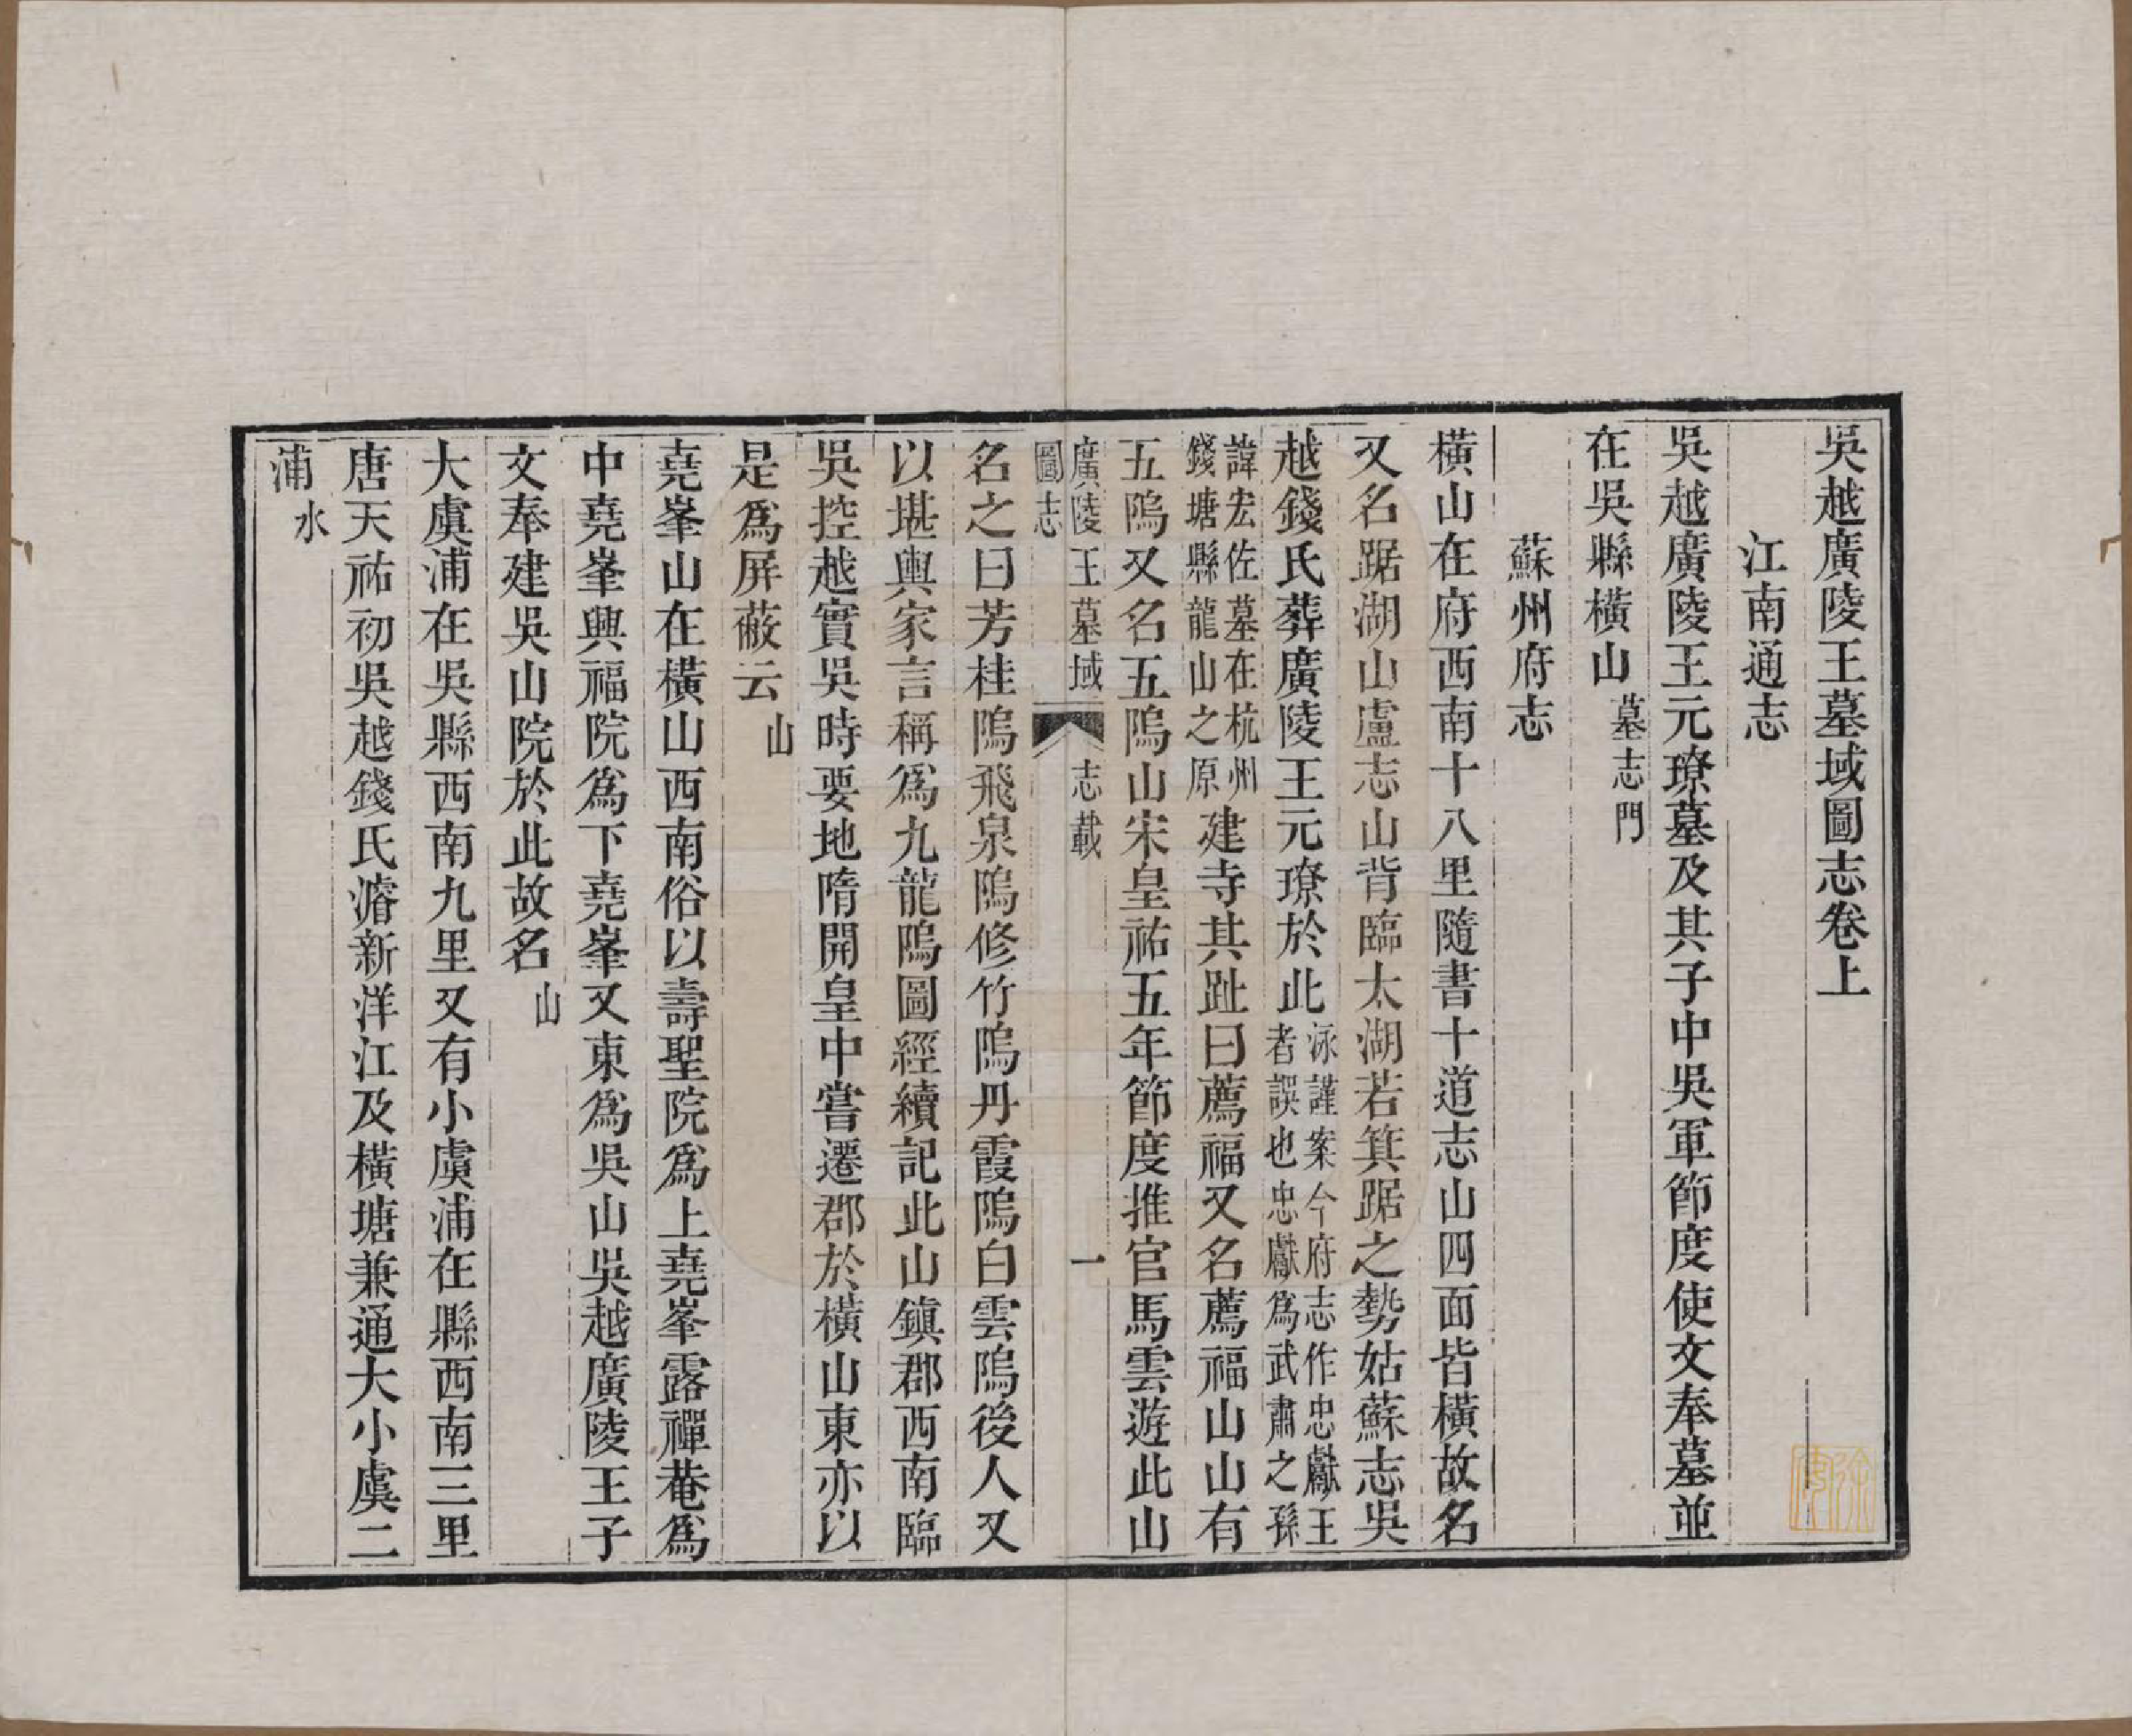 吳越廣陵王墓域圖志卷上
江南通志
吳越廣陵王元璙墓及其子中吳軍節度使文奉墓並
在吳縣橫山墓志門
蘇州府志
橫山在府西南十八里隨書十道志山四面皆橫故名
又名踞湖山盧志山背臨太湖若箕踞之勢姑蘇志吳
越錢氏葬廣陵王元璙於此泳謹案今府志作忠獻王者誤也忠獻爲武肅之孫
諱宏佐墓在杭州錢塘縣龍山之原建寺其趾曰薦福又名薦福山山有
五隖又名五隖山宋皇祐五年節度推官馬雲遊此山
廣陵王墓域圖志 志載 一
名之曰芳桂隖飛泉隖修竹隖丹霞隖白雲隖後人又
以堪輿家言稱爲九龍隖圖經續記此山鎮郡西南臨
吳控越實吳時要地隋開皇中嘗遷郡於橫山東亦以
是爲屏蔽云山
堯峯山在橫山西南俗以壽聖院爲上堯峯露禪菴爲
中堯峯興福院爲下堯峯又東爲吳山吳越廣陵王子
文奉建吳山院於此故名山
大虞浦在吳縣西南九里又有小虞浦在縣西南三里
唐天祐初吳越錢氏濬新洋江及橫塘兼通大小虞二
浦水